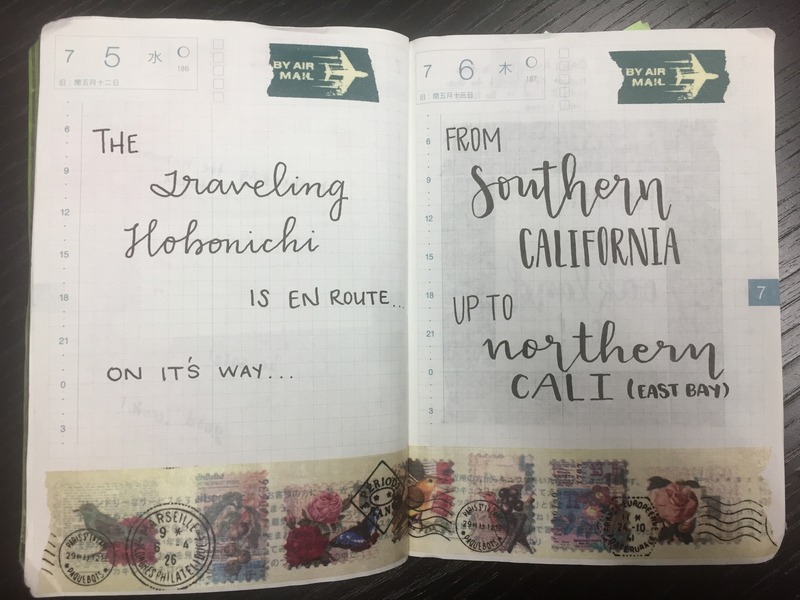 7 5 水
186
旧：閏五月十二日
BY AIR
MAIL
THE
Traveling
Hobonichi
IS EN ROUTE...
ON IT'S WAY...
6
9
12
15
18
21
0
3
7 6 木
187
旧：閏五月十三日
BY AIR
MAIL
FROM
Southern
CALIFORNIA
UP TO
northern
CALI (EAST BAY)
6
9
12
15
18
21
0
3
7
PAQUEBOTS
MARSEILLE
26